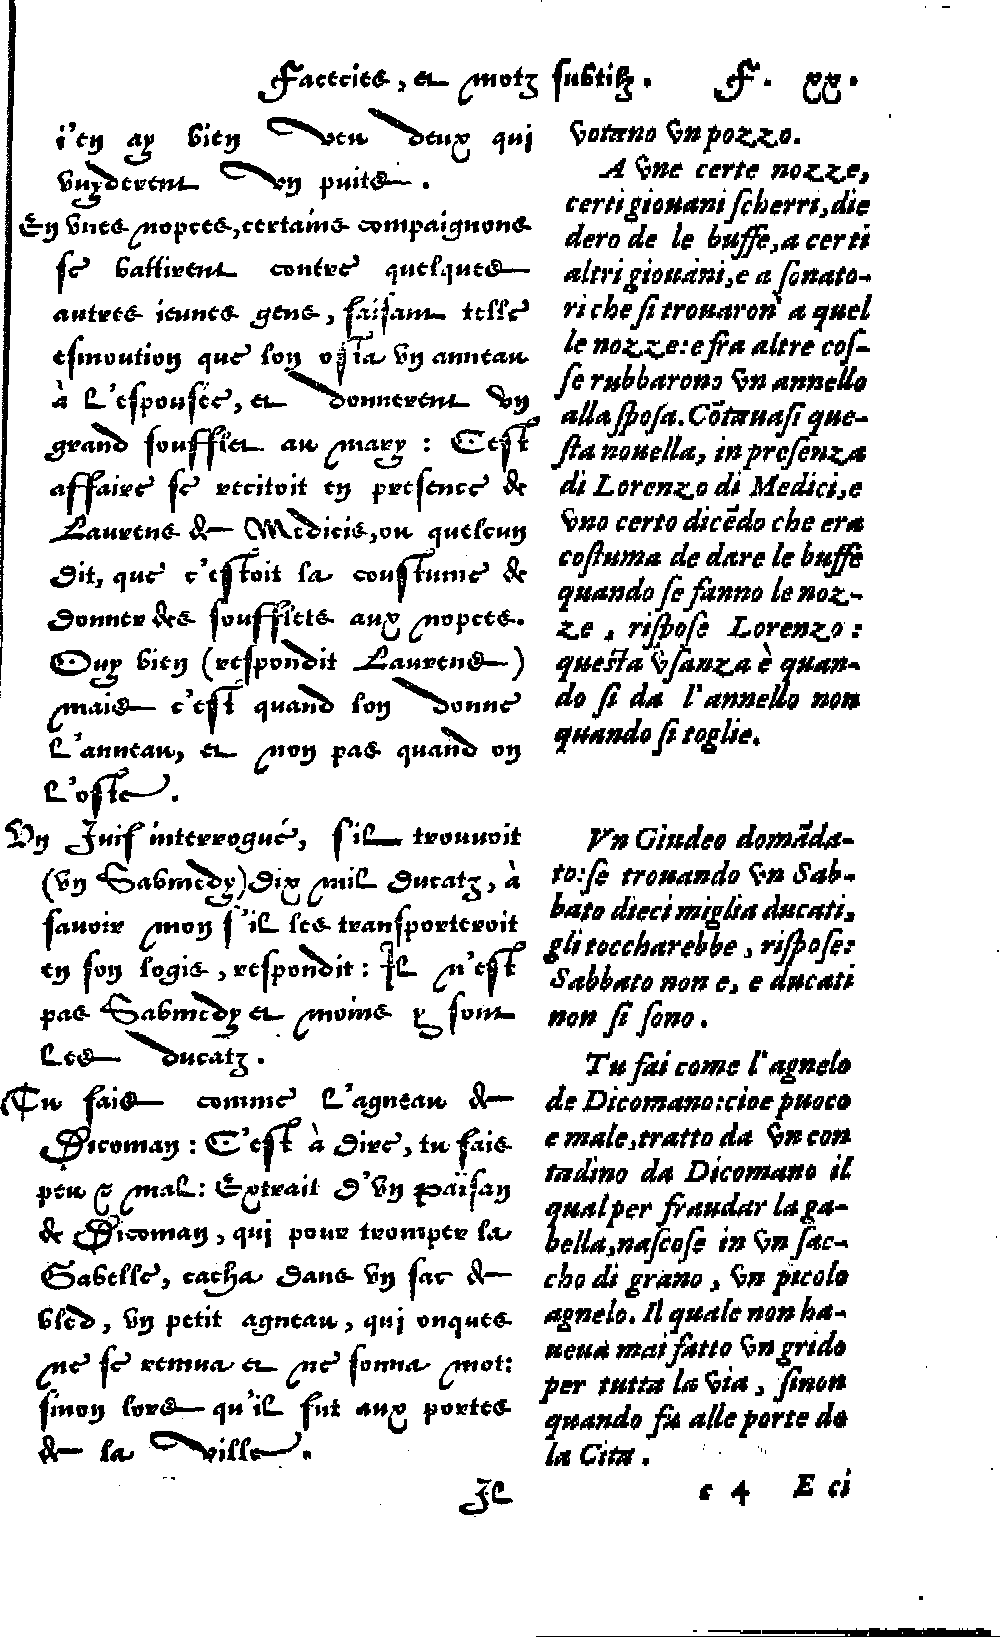 Facecies, et motz subtilz. F. xx.
i'en ay bien veu deux qui
vuyderent vn puits.
En vnes nopces, certains compaignons
se battirent contre quelques
autres ieunes gens, faisant telle
esmoution que lon osta vn anneau
à L'espousée, et donnerent vn
grand soufflet au mary : C'est
affaire se recitoit en presence de
Laurens de Medicis, ou quelcun
dit, que c'estoit la coustume de
donner des soufflets aux nopces.
Ouy bien (respondit Laurens)
mais c'est quand lon donne
L'anneau, et non pas quand on
L'oste.
Vn Juif interrogué, s'il trouuoit
(vn Sabmedy) dix mil ducatz, à
sauoir mon s'il les transporteroit
en son logis, respondit : Il n'est
pas Sabmedy et moins y sont
Les ducatz.
Tu fais comme L'agneau de
Dicoman : C'est à dire, tu fais
peu & mal : Extrait d'vn païsan
de Dicoman, qui pour tromper la
Gabelle, cacha dans vn sac de
bled, vn petit agneau, qui onques
ne se remua et ne sonna mot:
sinon lors qu'il fut aux portes
de la ville.
Il
votano vn pozzo.
A vne certe nozze,
certi giouani scherri, die
dero de le buffe, a certi
altri giouani, e a sonato-
ri che si trouaron a quel
le nozze: e fra altre cos-
se rubbarono vn annello
alla sposa. Cõtauasi que-
sta nouella, in presenza
di Lorenzo di Medici, e
vno certo dicẽdo che era
costuma de dare le buffe
quando se fanno le noz-
ze, rispose Lorenzo :
questa vsanza è quan-
do si da l'annello non
quando si toglie.
Vn Giudeo domãda-
to: se trouando vn Sab-
bato dieci miglia ducati,
gli toccharebbe, rispose:
Sabbato non e, e ducati
non si sono.
Tu fai come l'agnelo
de Dicomano: cioe puoco
e male, tratto da vn con
tadino da Dicomano il
qual per fraudar la ga-
bella, nascose in vn sac-
cho di grano, vn picolo
agnelo. Il quale non ha-
ueua mai fatto vn grido
per tutta la via, sinon
quando fu alle porte de
la Cita.
c 4 E ci